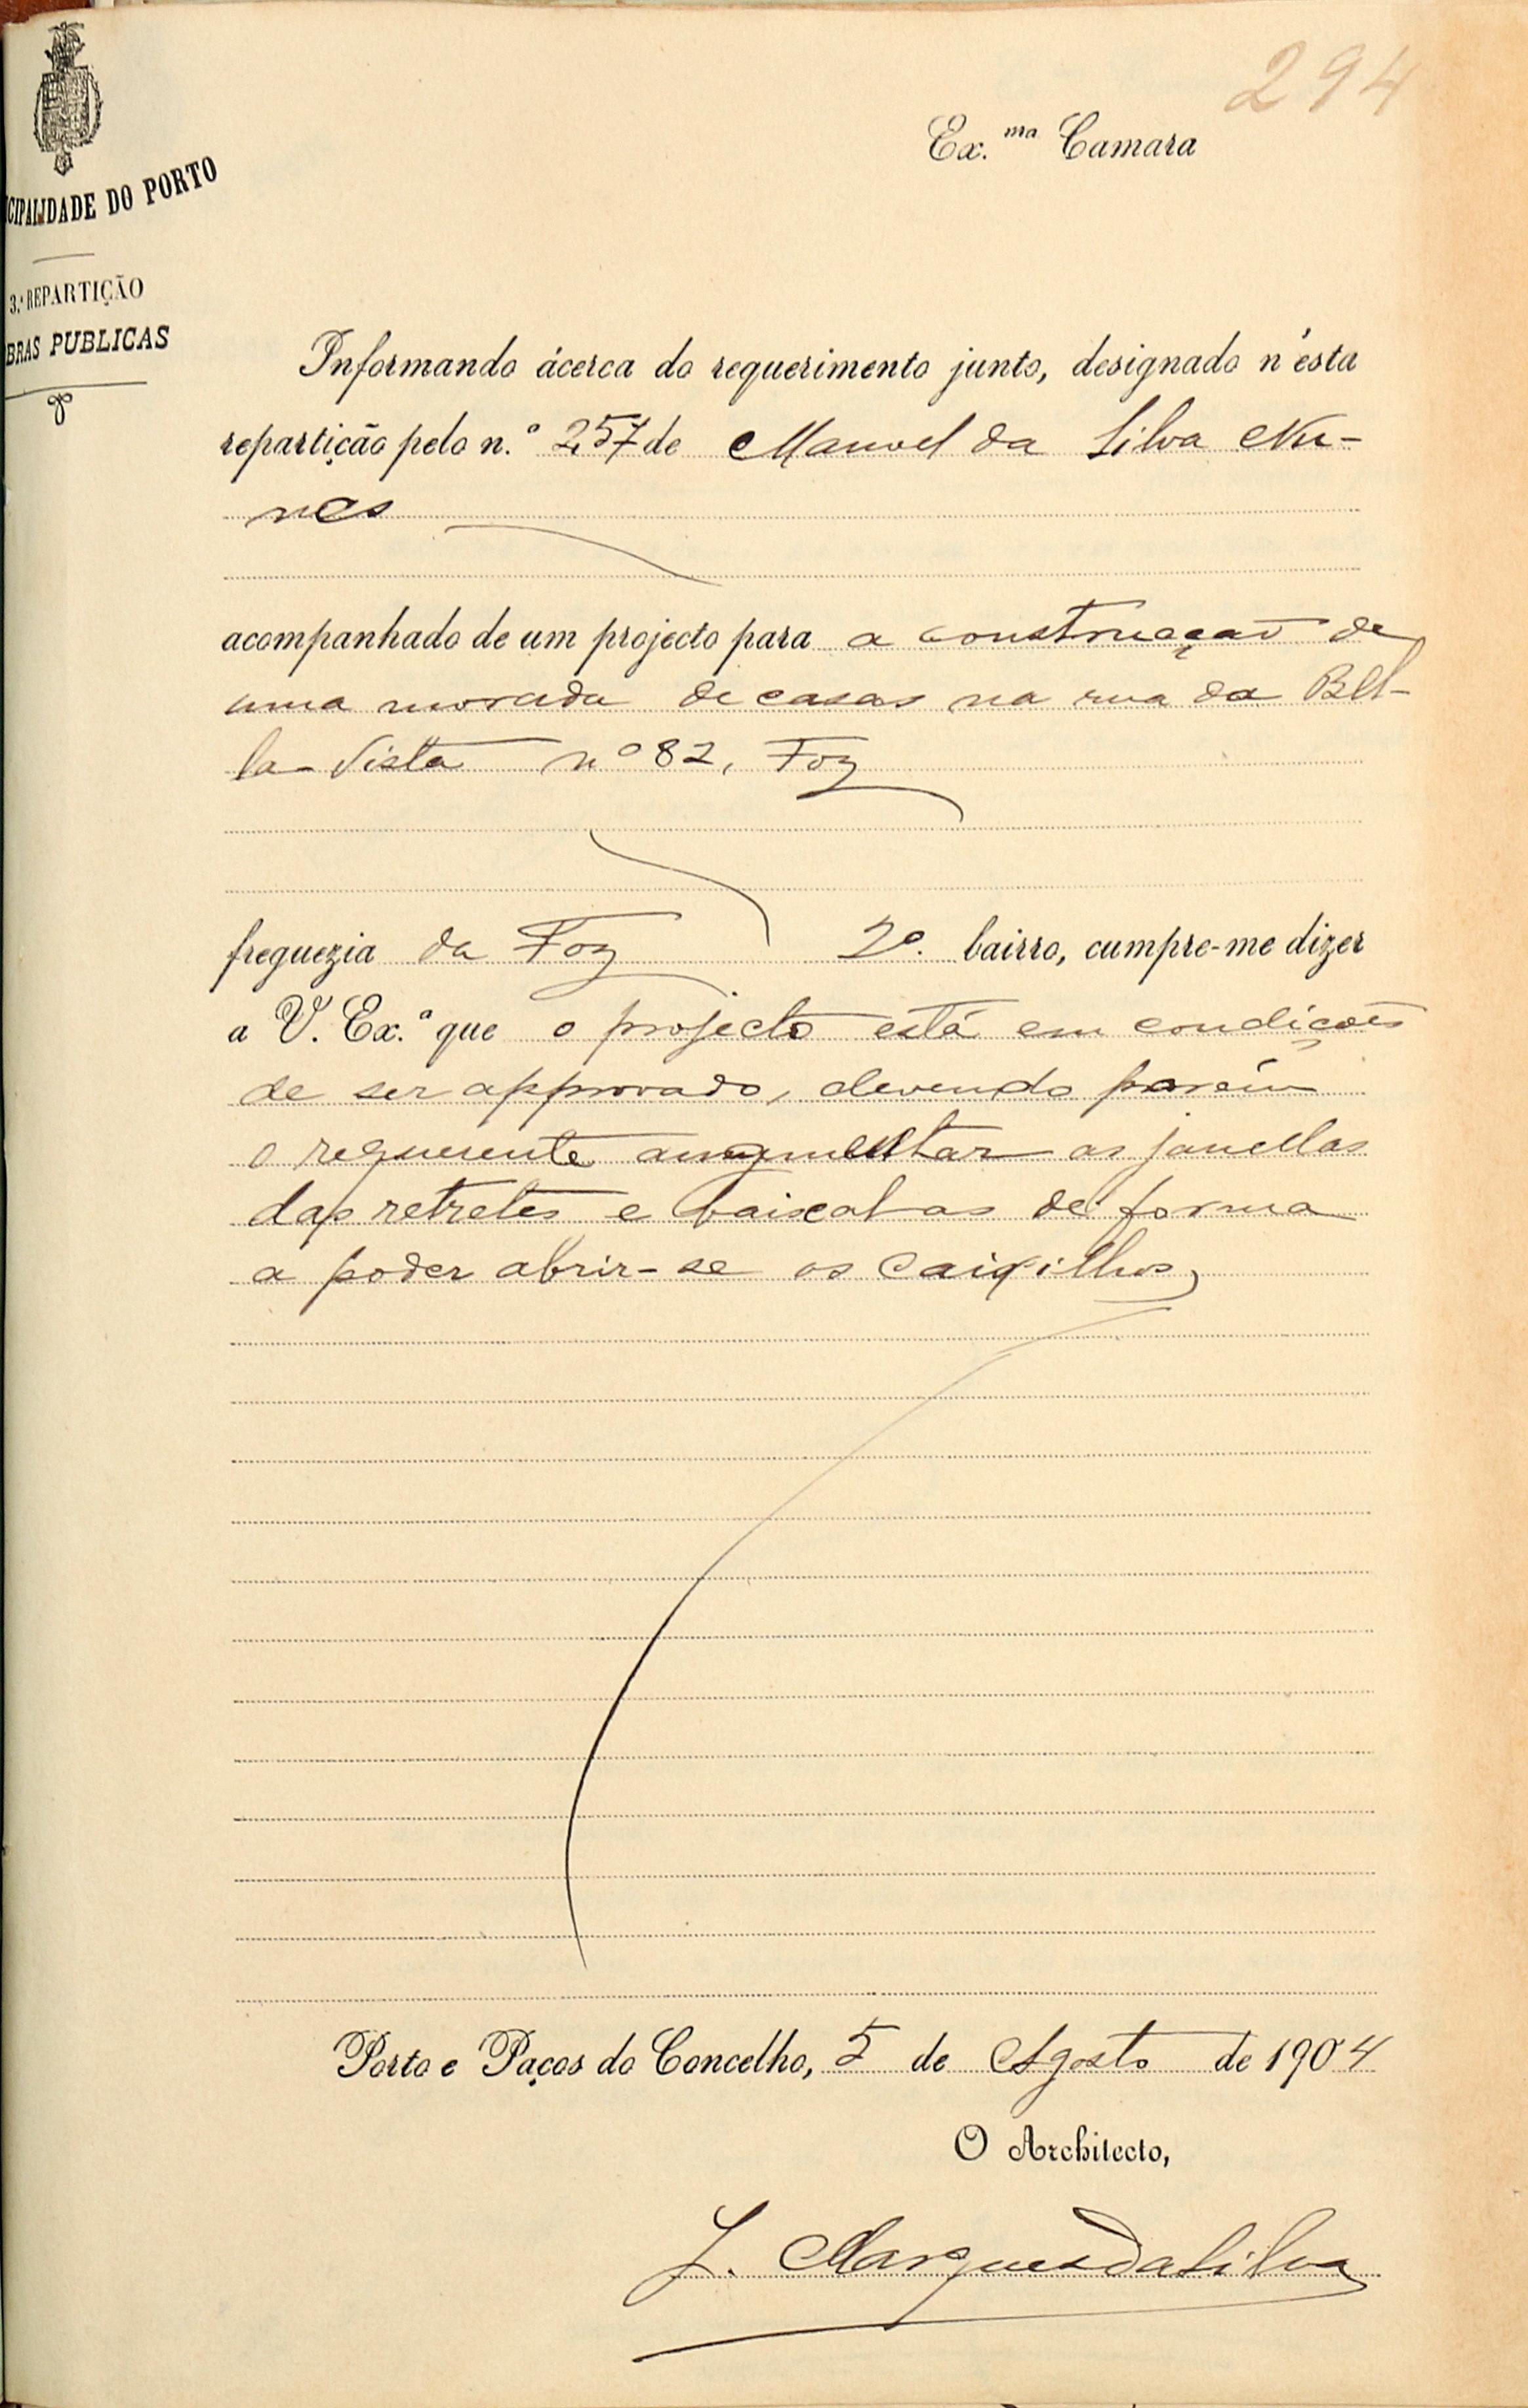 294
Ex.ma Camara
CIPALIDADE DO PORTO
3.ª REPARTIÇÃO
BRAS PUBLICAS
Informando ácerca do requerimento junto, designado n'esta
repartição pelo n.º 257 de Manoel da Silva Nu-
nes
acompanhado de um projecto para a construcção de
uma morada de casas na rua da Bel-
la-Vista nº 82, Foz
freguezia da Foz 2º. bairro, cumpre-me dizer
a V. Ex.ª que o projecto está em condições
de ser approvado, devendo porém
o requerente augmentar as janellas
das retretes e baixal-as de forma
a poder abrir-se os caixilhos,
Porto e Paços do Concelho, 5 de Agosto de 1904
O Architecto,
J. Marques da Silva